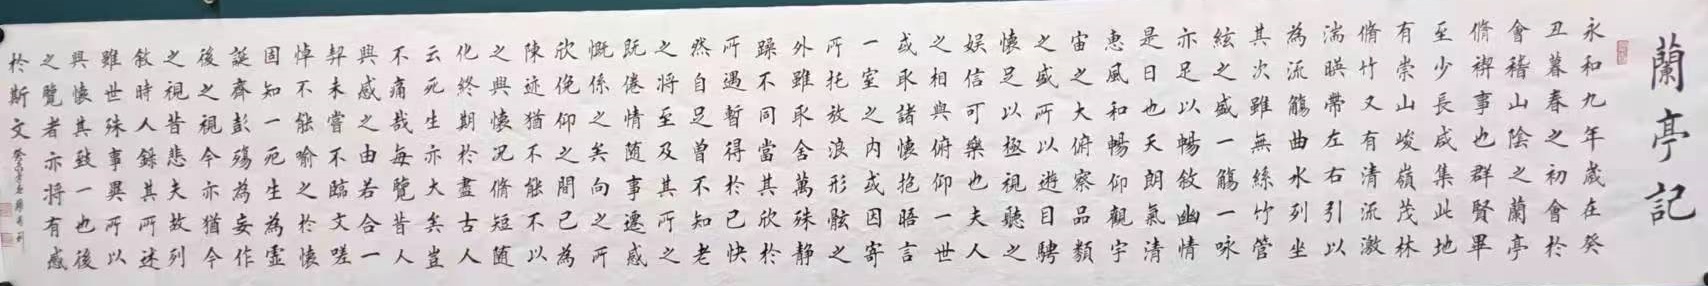 蘭亭記
永和九年歲在癸
丑暮春之初會於
會稽山陰之蘭亭
脩禊事也群賢畢
至少長咸集此地
有崇山峻嶺茂林
脩竹又有清流激
湍暎帶左右引以
為流觴曲水列坐
其次雖無絲竹管
絃之盛一觴一咏
亦足以暢敘幽情
是日也天朗氣清
惠風和暢仰觀宇
宙之大俯察品類
之盛所以遊目騁
懷足以極視聽之
娛信可樂也夫人
之相與俯仰一世
或取諸懷抱晤言
一室之內或因寄
所托放浪形骸之
外雖取舍萬殊静
躁不同當其欣於
所遇暫得於己快
然自足曾不知老
之將至及其所之
既倦情随事遷感
慨係之矣向之所
欣俛仰之間已為
陳迹猶不能不以
之興懷況脩短随
化終期於盡古人
云死生亦大矣豈
不痛哉每覽昔人
興感之由若合一
契未嘗不臨文嗟
悼不能喻之於懷
固知一死生為虛
誕齊彭殤為妄作
後之視今亦猶今
之視昔悲夫故列
敘時人錄其所述
雖世殊事異所以
興懷其致一也後
之覽者亦將有感
於斯文